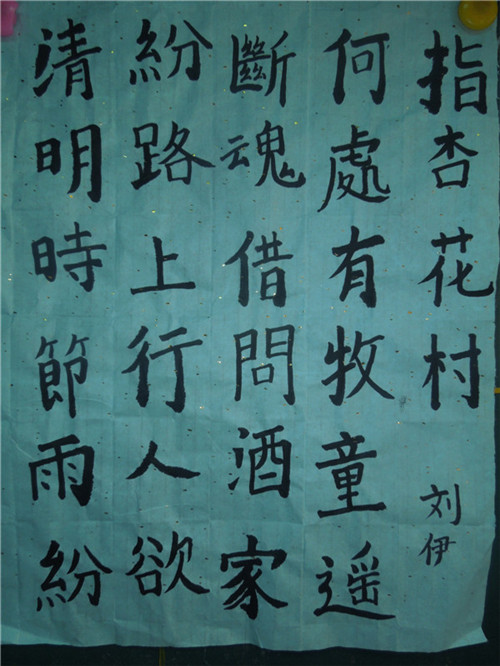 清明時節雨紛
紛路上行人欲
斷魂借問酒家
何處有牧童遥
指杏花村
刘伊